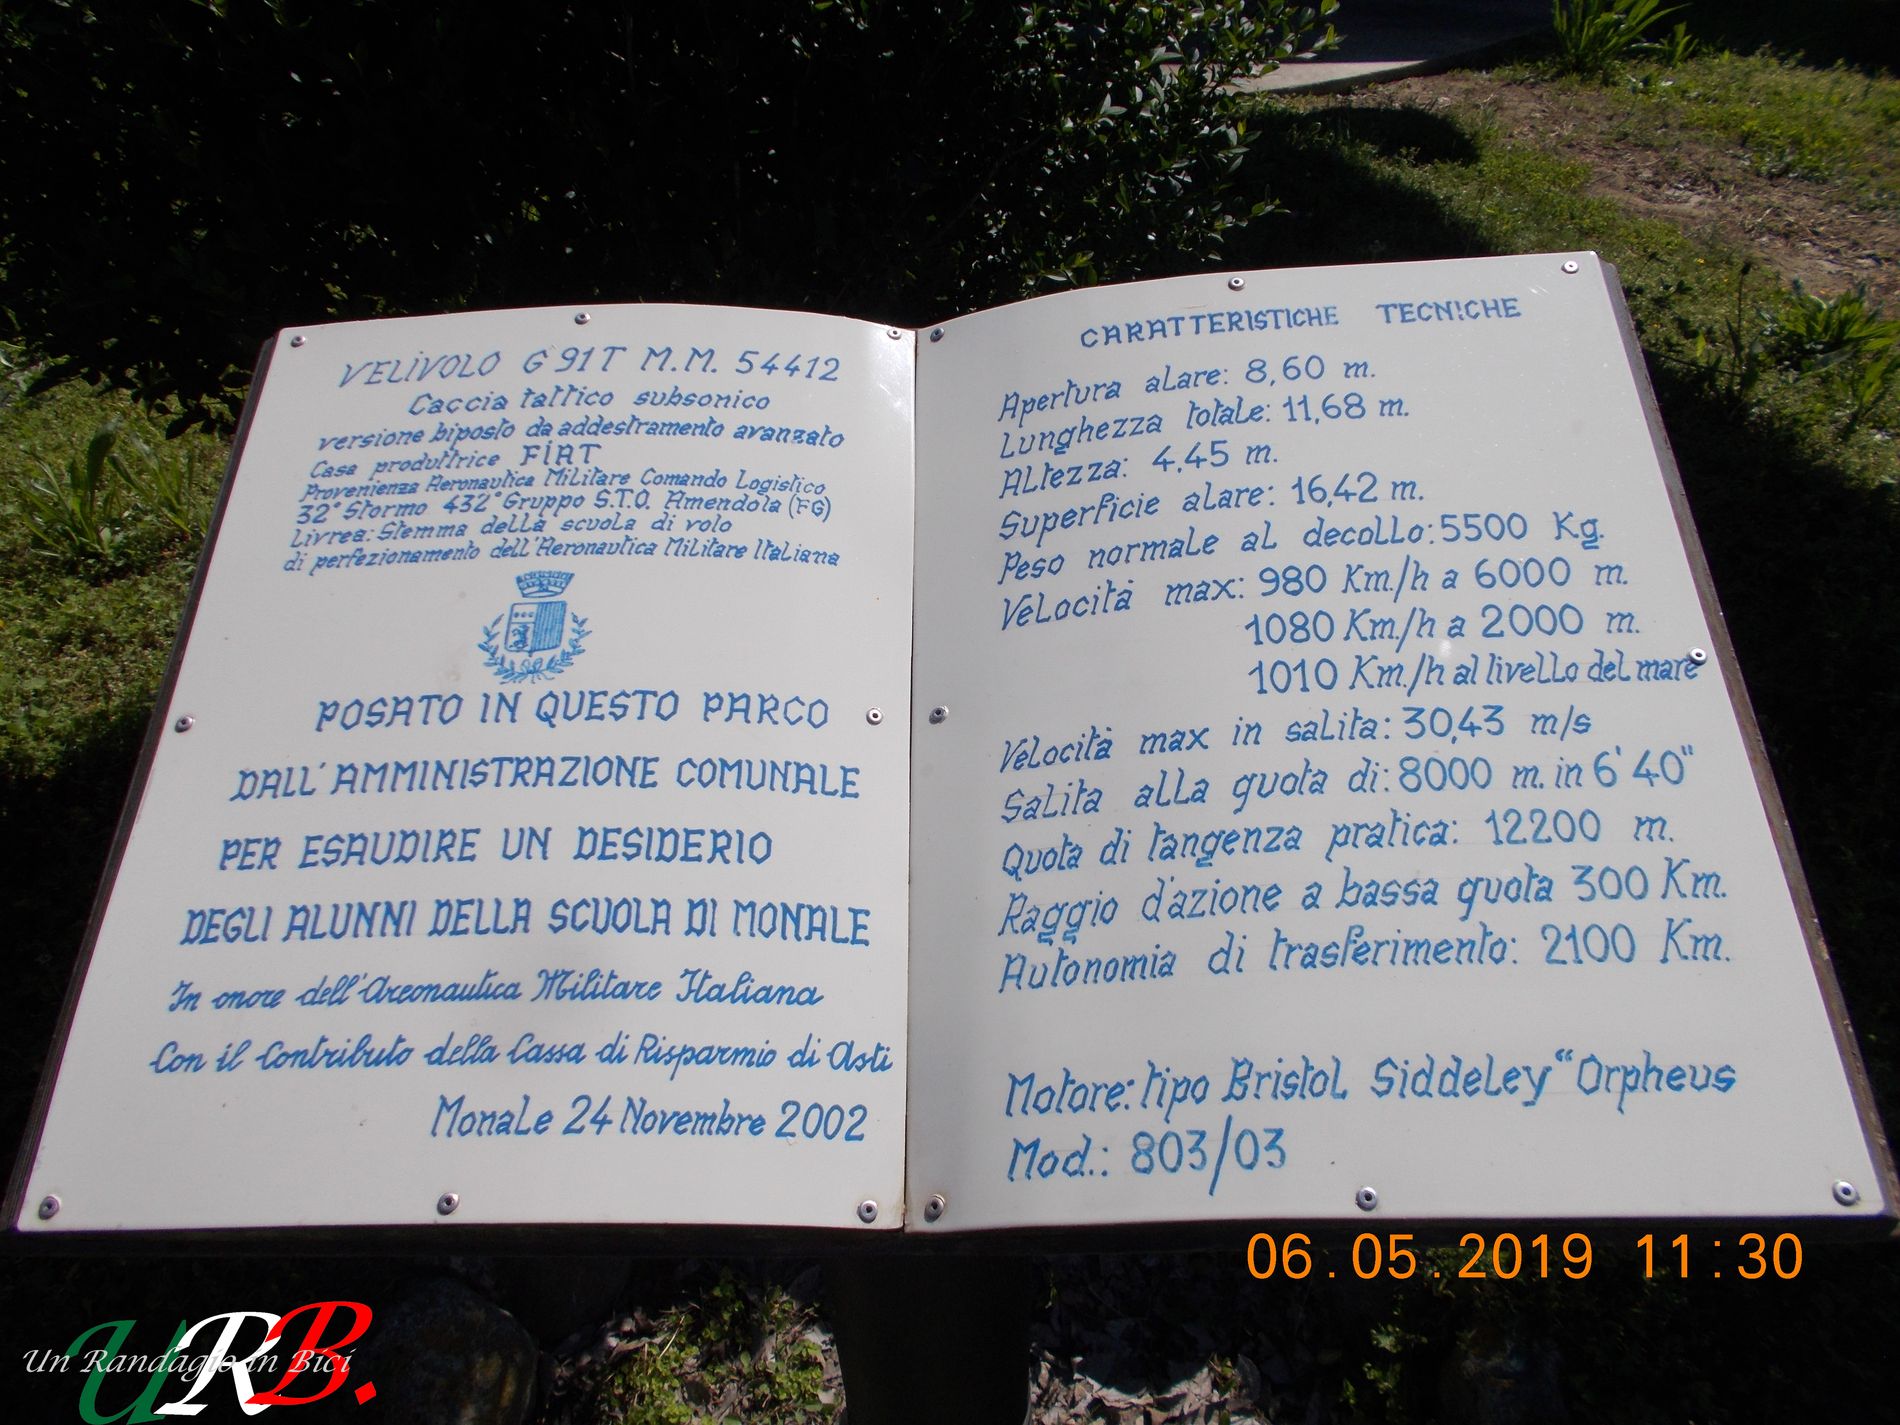 VELIVOLO G 91T M.M. 54412
Caccia tattico subsonico
versione biposto da addestramento avanzato
Casa produttrice FIAT
Provenienza Aeronautica Militare Comando Logistico
32° Stormo 432° Gruppo S.T.O. Amendola (FG)
Livrea: Stemma della scuola di volo
di perfezionamento dell'Aeronautica Militare Italiana
POSATO IN QUESTO PARCO
DALL'AMMINISTRAZIONE COMUNALE
PER ESAUDIRE UN DESIDERIO
DEGLI ALUNNI DELLA SCUOLA DI MONALE
In onore dell'Areonautica Militare Italiana
Con il Contributo della Cassa di Risparmio di Asti
Monale 24 Novembre 2002
CARATTERISTICHE TECNICHE
Apertura alare: 8,60 m.
Lunghezza totale: 11,68 m.
Altezza: 4,45 m.
Superficie alare: 16,42 m.
Peso normale al decollo: 5500 Kg.
Velocità max: 980 Km./h a 6000 m.
1080 Km./h a 2000 m.
1010 Km./h al livello del mare
Velocità max in salita: 30,43 m/s
Salita alla quota di: 8000 m. in 6' 40"
Quota di tangenza pratica: 12200 m.
Raggio d'azione a bassa quota 300 Km.
Autonomia di trasferimento: 2100 Km.
Motore: tipo Bristol Siddeley "Orpheus
Mod.: 803/03
06.05.2019 11:30
URB.
Un Randagio in Bici